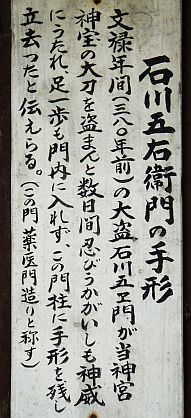 石川五右衛門の手形
文禄年間(三八〇年前)の大盗石川五ヱ門が当神宮
神宝の大刀を盗まんと数日間忍びうかがいしも神威
にうたれ足一歩も門内に入れず、この門柱に手形を残し
立去つたと伝えらる。(この門 薬医門造りと称す)